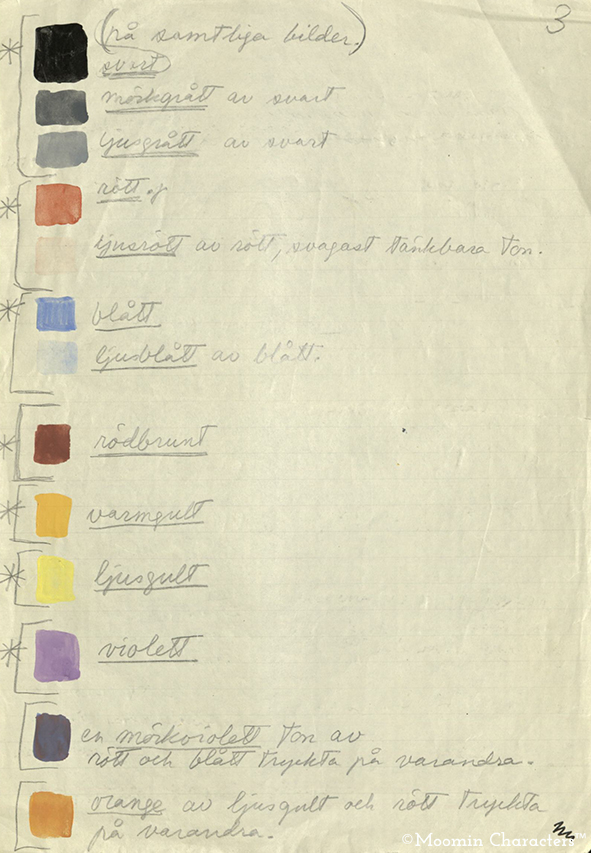 3
(på samtliga bilder.)
svart
mörkgrått av svart
ljusgrått av svart
rött.
ljusrött av rött, svagast tänkbara ton.
blått
ljusblått av blått.
rödbrunt
varmgult
ljusgult
violett
en mörkviolett ton av
rött och blått tryckta på varandra.
orange av ljusgult och rött tryckta
på varandra.
© Moomin Characters™